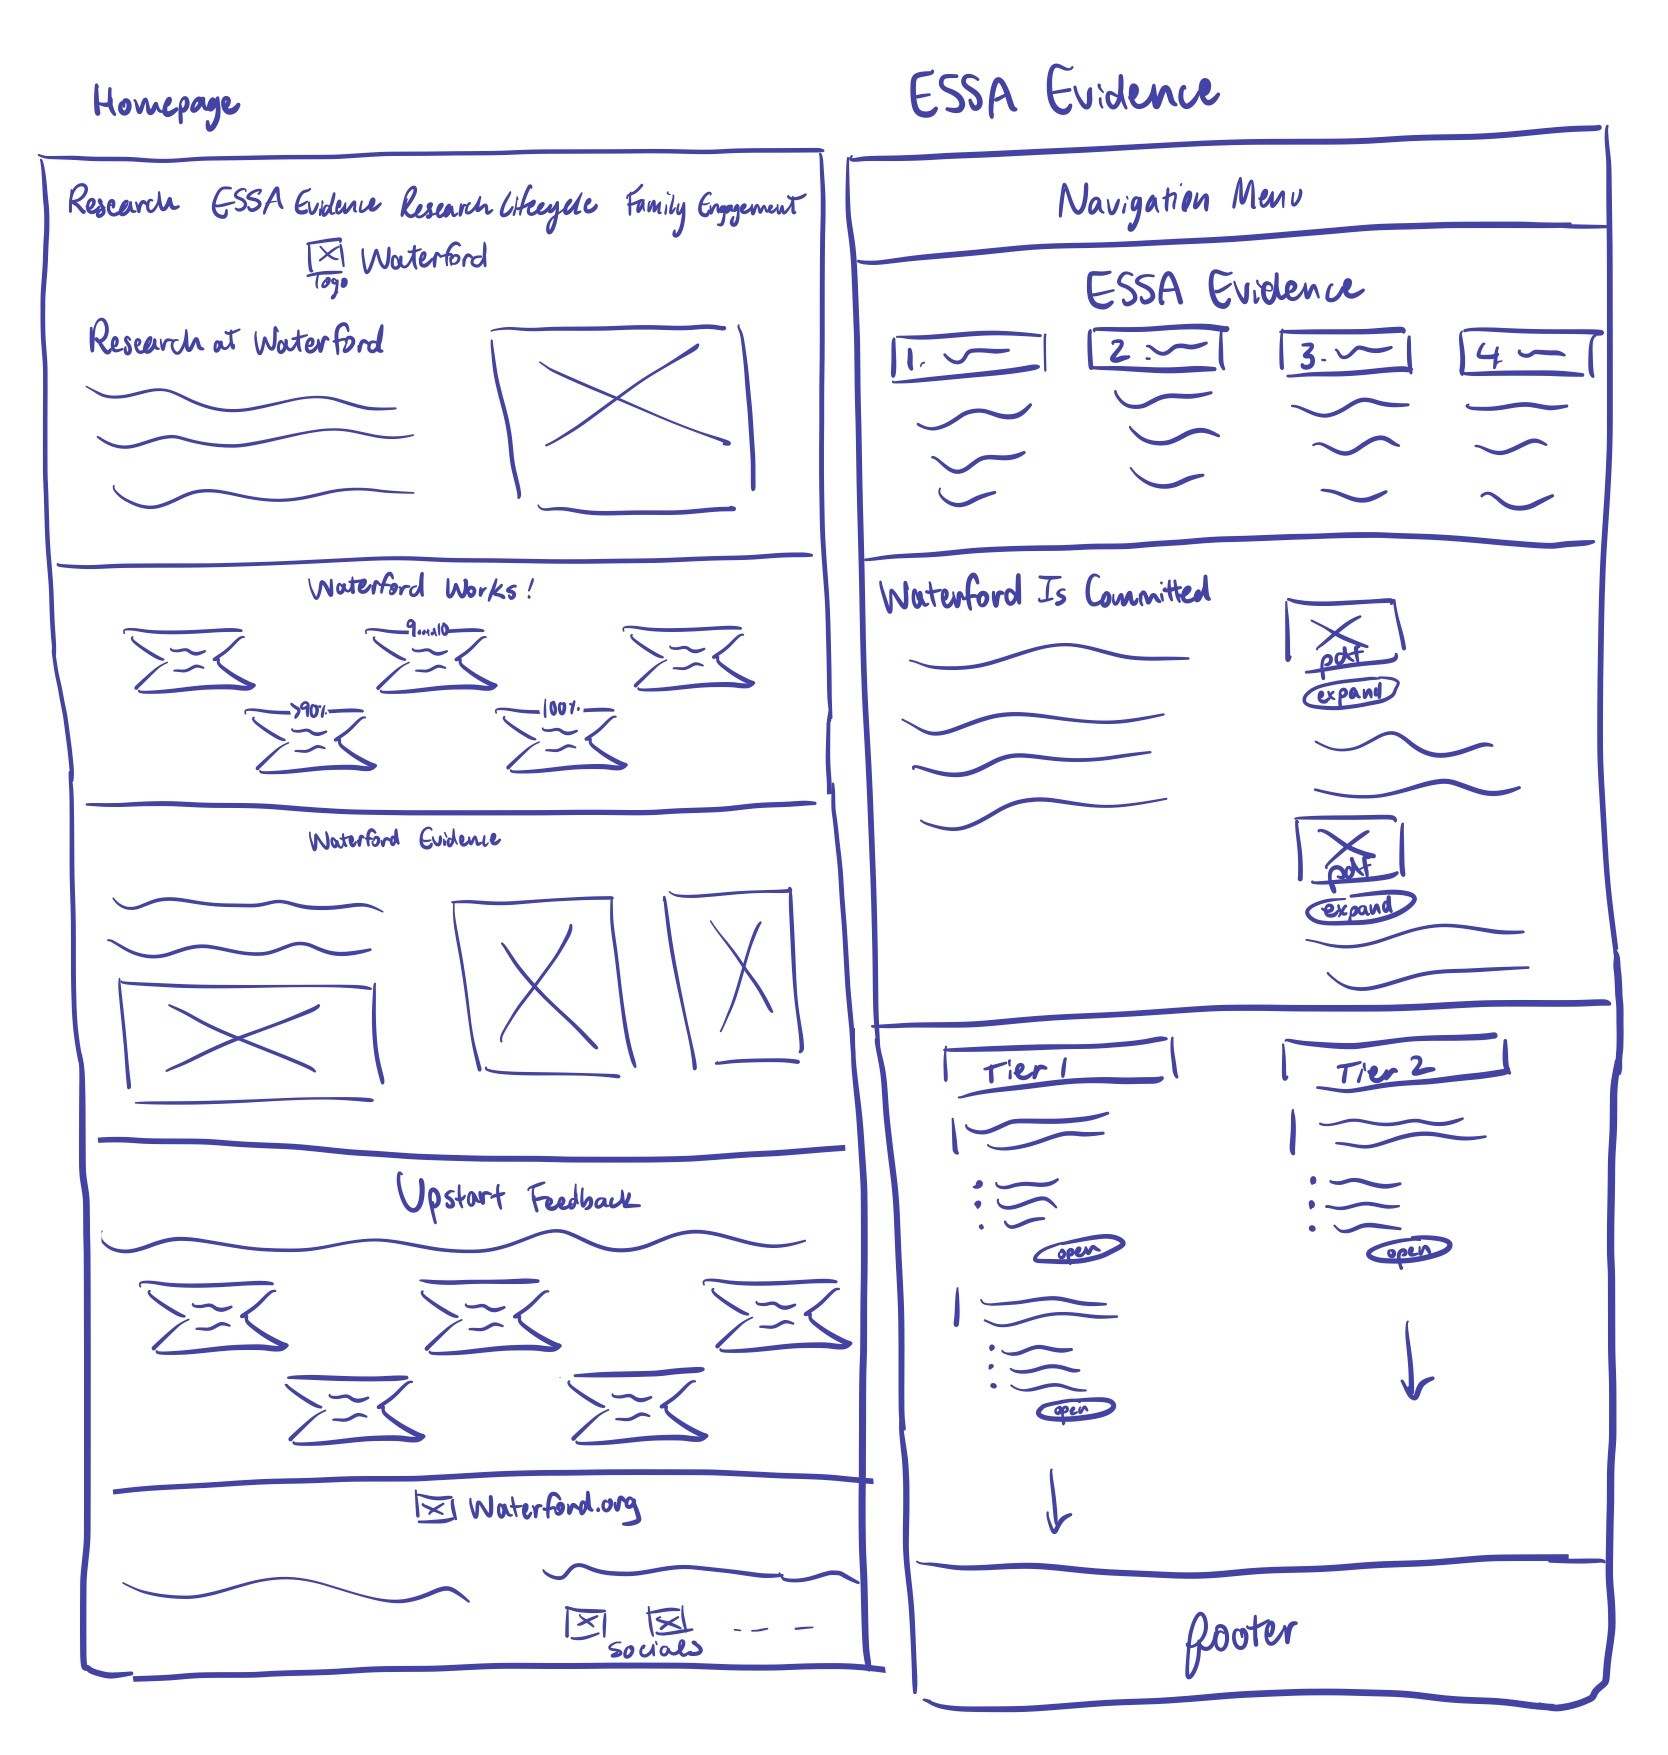 Homepage
Research ESSA Evidence Research Lifecycle Family Engagement
Logo Waterford
Research at Waterford
Waterford Works!
9......10
>90% 100%
Waterford Evidence
Upstart Feedback
Waterford.org
Socials
ESSA Evidence
Navigation Menu
ESSA Evidence
1. 2. 3. 4.
Waterford Is Committed
pdf
expand
pdf
expand
Tier 1 Tier 2
open open
open
footer